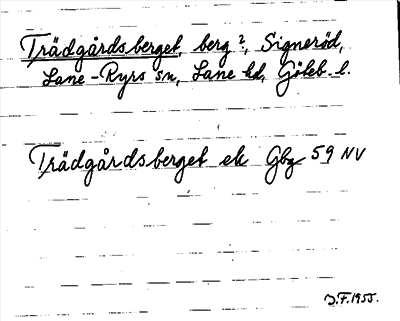 Trädgårdsberget, berg?, Signeröd,
Lane-Ryrs sn, Lane hd, Göteb. l.
Trädgårdsberget ek Gbg 59 NV
D.F. 1955.